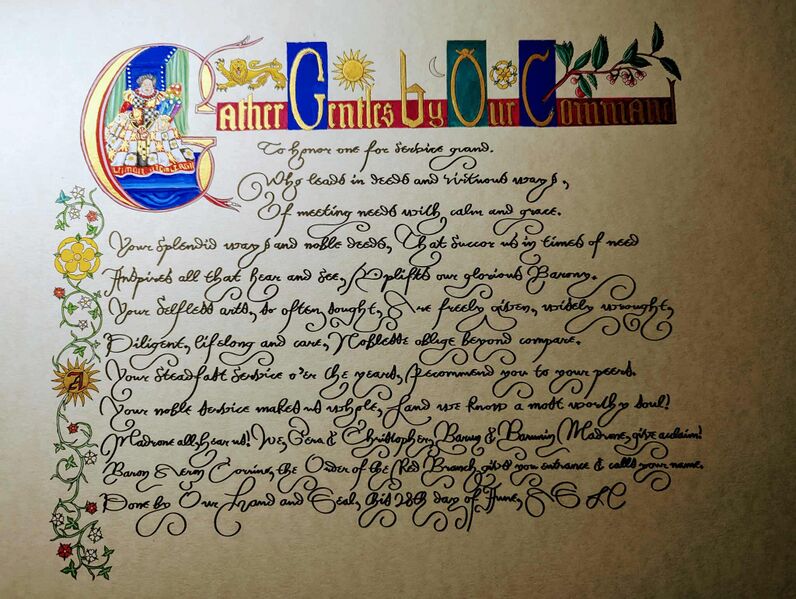 Gather Gentles by Our Command
To honor one for service grand.
Who leads in deeds and Virtuous ways,
Of meeting needs with calm and grace.
Your splendid ways and noble deeds, That succor us in times of need
Inspires all that hear and see, Uplifts our glorious Barony.
Your selfless arts, so often sought, Are freely given, widely wrought,
Diligent, lifelong and care, Noblesse oblige beyond compare.
A
Your steadfast service o'er the years, Recommend you to your peers.
Your noble service makes us whole, And we know a most worthy soul!
Madrone all, hear us! We, & Christopher, & Madrone, give acclaim!
Baron Corrine, the Order of the Red Branch, gives you entrance & calls your name.
Done by Our Hand and Seal, this 28th day of June,